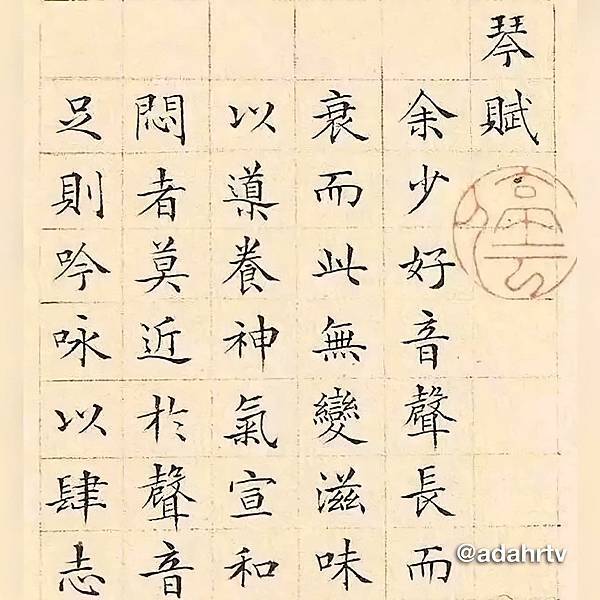 琴賦
余少好音聲長而
衰而此無變滋味
以導養神氣宣和
悶者莫近於聲音
足則吟咏以肆志
@adahrtv